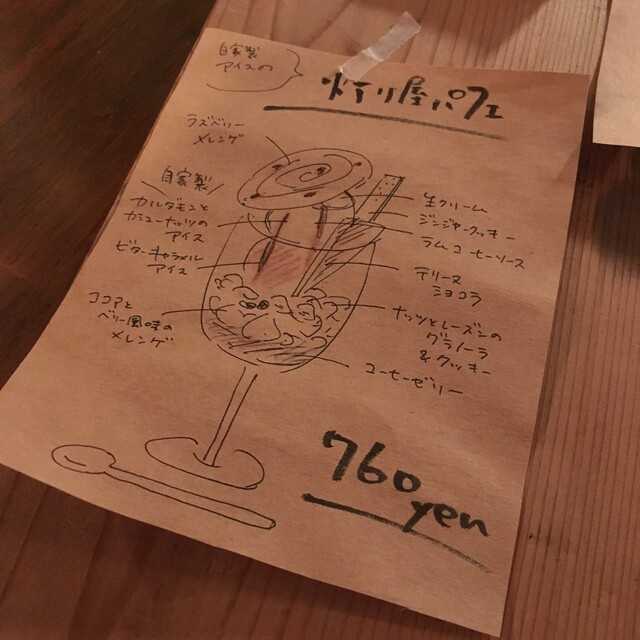 自家製
アイスの
灯り屋パフェ
ラズベリー
メレンゲ
自家製
カルダモンと
カシューナッツの
アイス
ビターキャラメル
アイス
ココアと
ベリー風味の
メレンゲ
生クリーム
ジンジャークッキー
ラムコーヒーソース
テリーヌ
ショコラ
ナッツとレーズンの
グラノーラ
&クッキー
コーヒーゼリー
760
yen